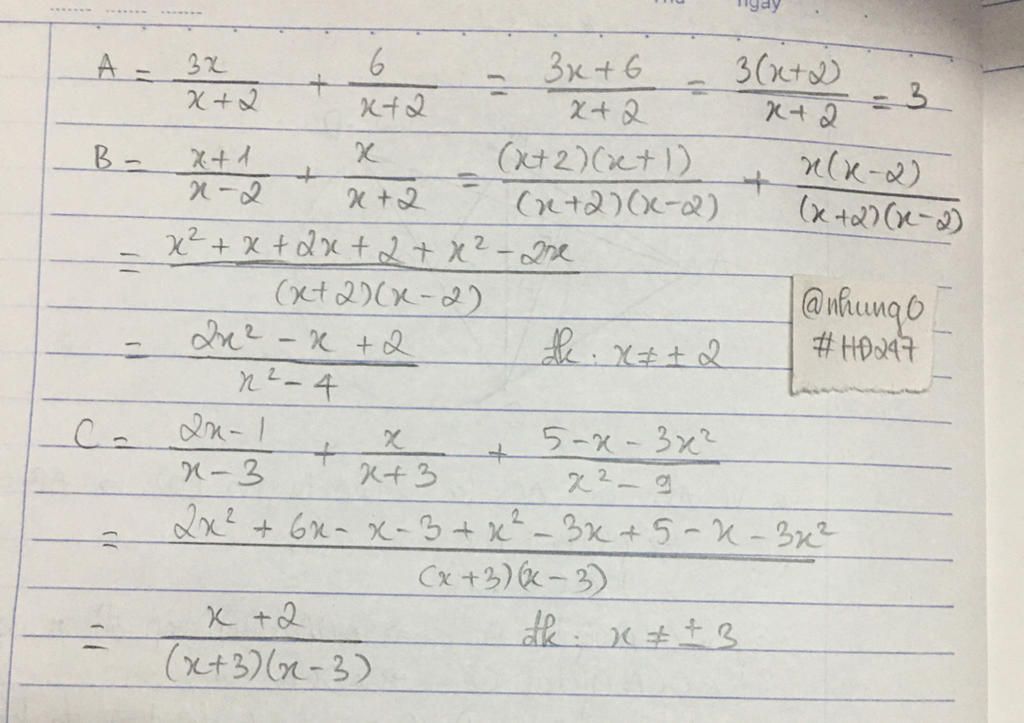 ngày
A = 3x/(x+2) + 6/(x+2) = (3x+6)/(x+2) = 3(x+2)/(x+2) = 3
B = (x+1)/(x-2) + x/(x+2) = (x+2)(x+1)/(x+2)(x-2) + x(x-2)/(x+2)(x-2)
= (x² + x + 2x + 2 + x² - 2x)/(x+2)(x-2)
@nhung0
= (2x² - x + 2)/(x² - 4) đk : x ≠ ± 2
#HĐ247
C = (2x-1)/(x-3) + x/(x+3) + (5-x-3x²)/(x²-9)
= (2x² + 6x - x - 3 + x² - 3x + 5 - x - 3x²)/(x+3)(x-3)
= (x+2)/(x+3)(x-3) đk : x ≠ ± 3